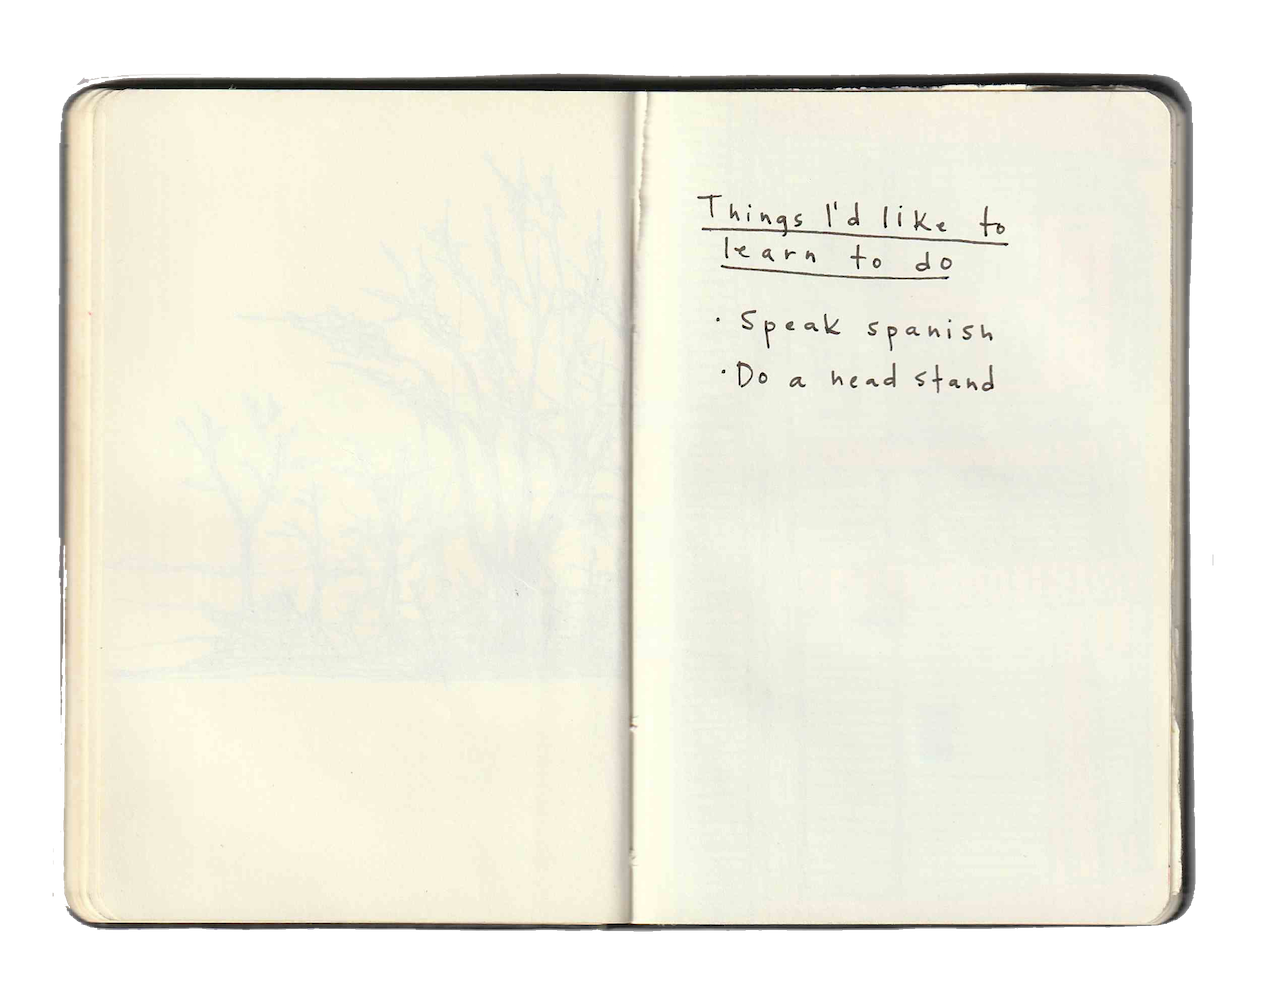 Things I'd like to
learn to do
· Speak spanish
· Do a head stand